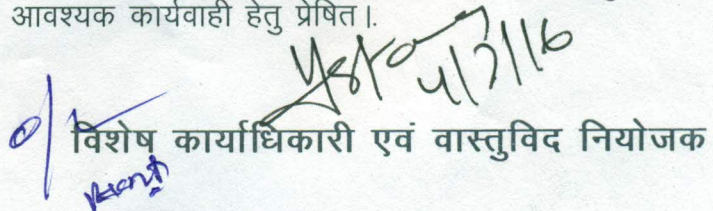 आवश्यक कार्यवाही हेतु प्रेषित।
4/7/16
विशेष कार्याधिकारी एवं वास्तुविद नियोजक